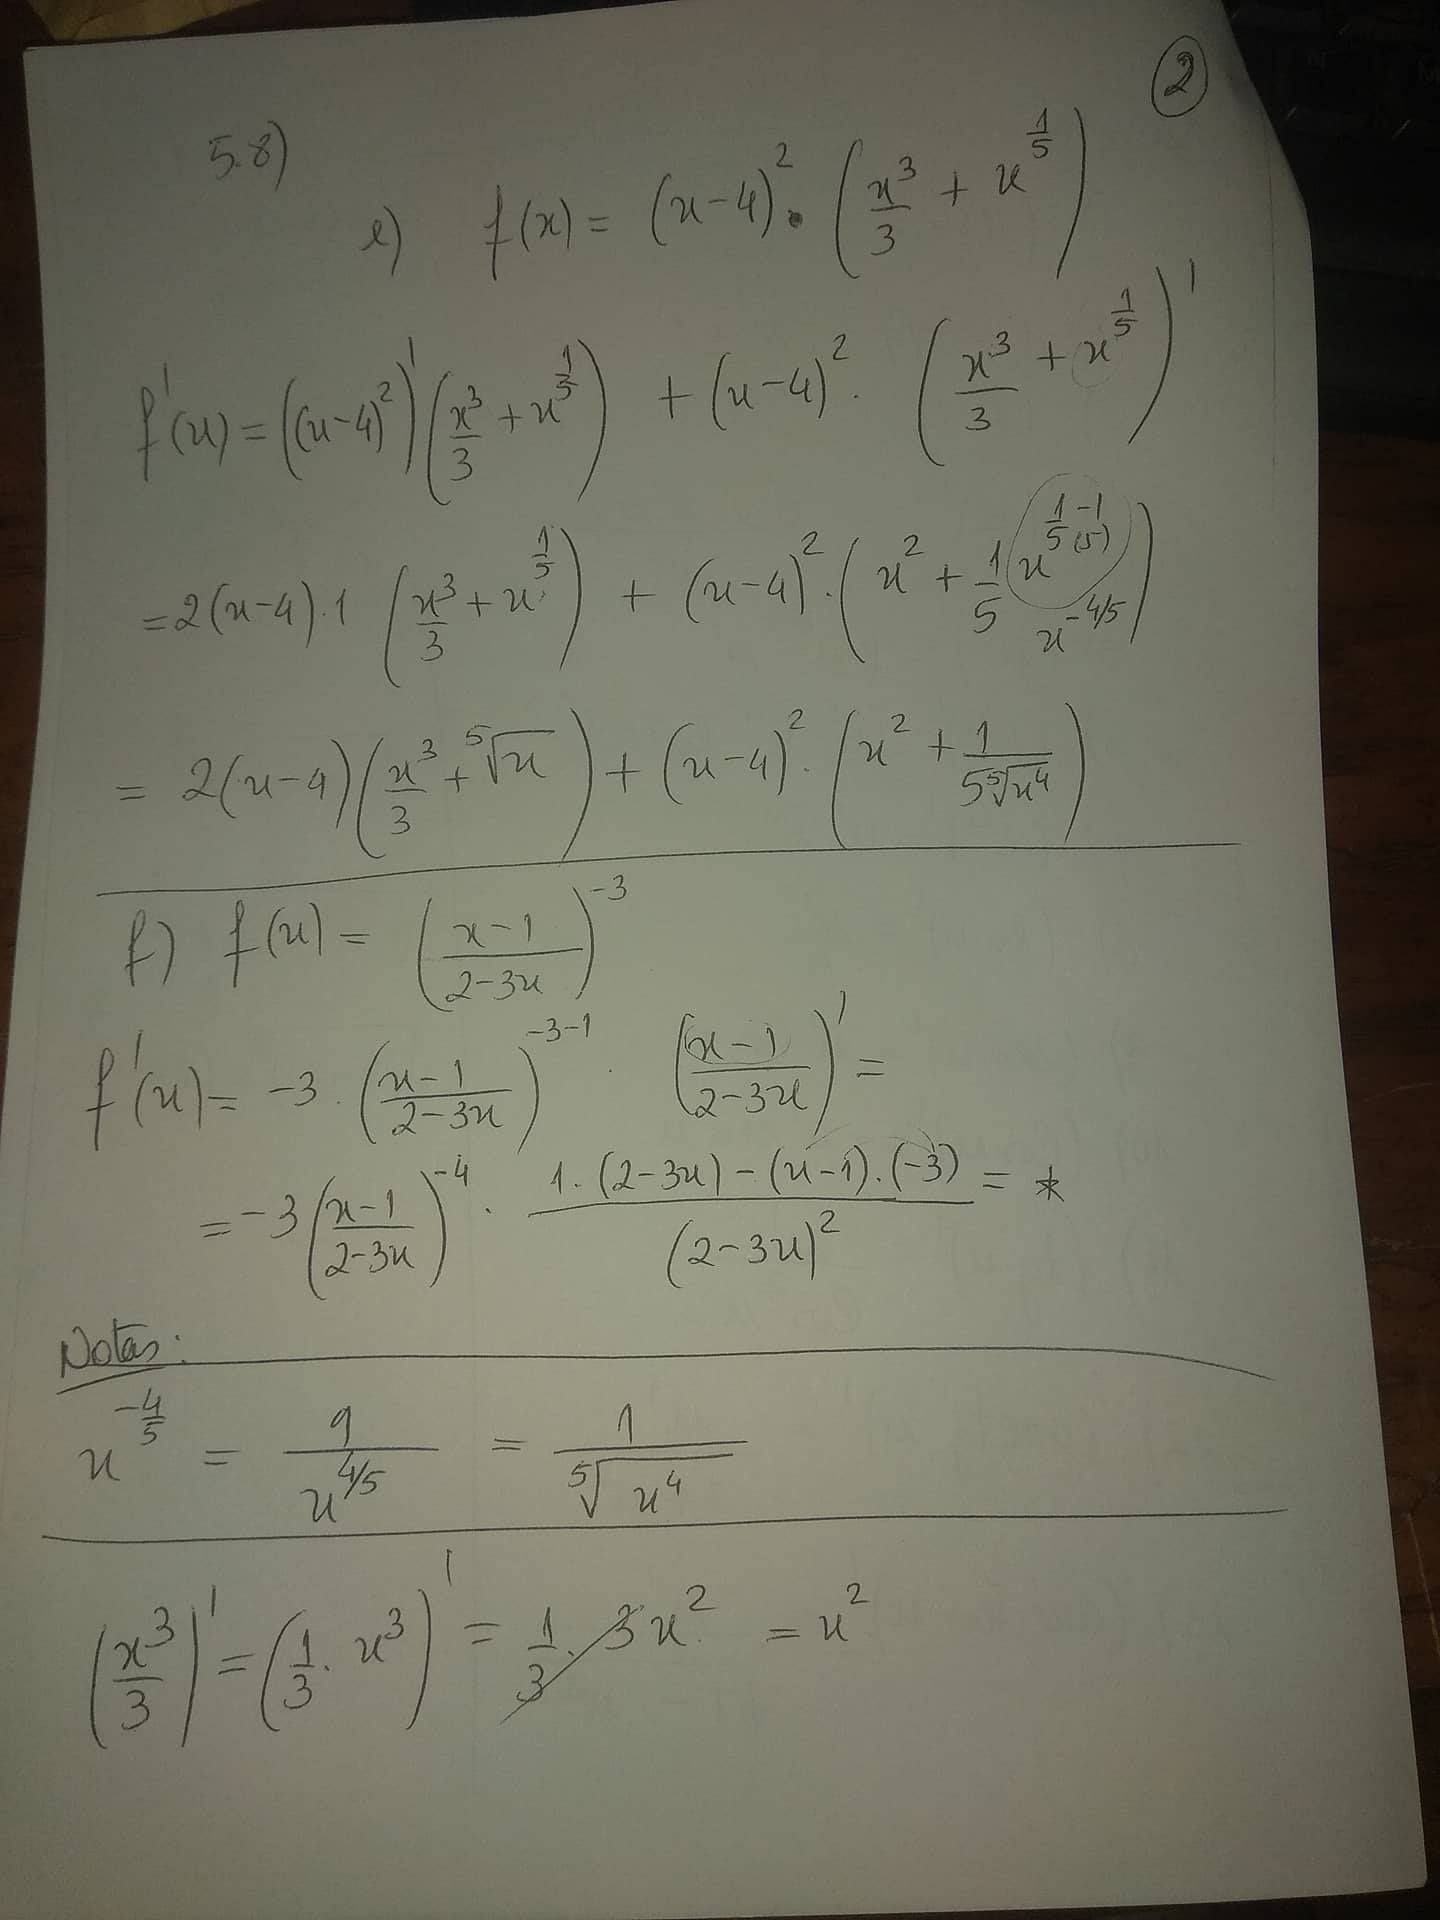 2
5.8)
e) f(x) = (x-4)² • (x³/3 + x^(1/5))
f'(x) = ((x-4)²)' (x³/3 + x^(1/5)) + (x-4)² . (x³/3 + x^(1/5))'
= 2(x-4).1 (x³/3 + x^(1/5)) + (x-4)² . (x² + 1/5 x^(1/5 - 1 (5)) x^(-4/5))
= 2(x-4) (x³/3 + ⁵√x) + (x-4)² . (x² + 1/(5 ⁵√x⁴))
f) f(x) = ((x-1)/(2-3x))^(-3)
f'(x) = -3 . ((x-1)/(2-3x))^(-3-1) . ((x-1)/(2-3x))' =
= -3 ((x-1)/(2-3x))^(-4) . (1.(2-3x) - (x-1).(-3))/(2-3x)² = *
Notas:
x^(-4/5) = 1/x^(4/5) = 1/⁵√x⁴
(x³/3)' = (1/3 . x³)' = 1/3 . 3x² = x²